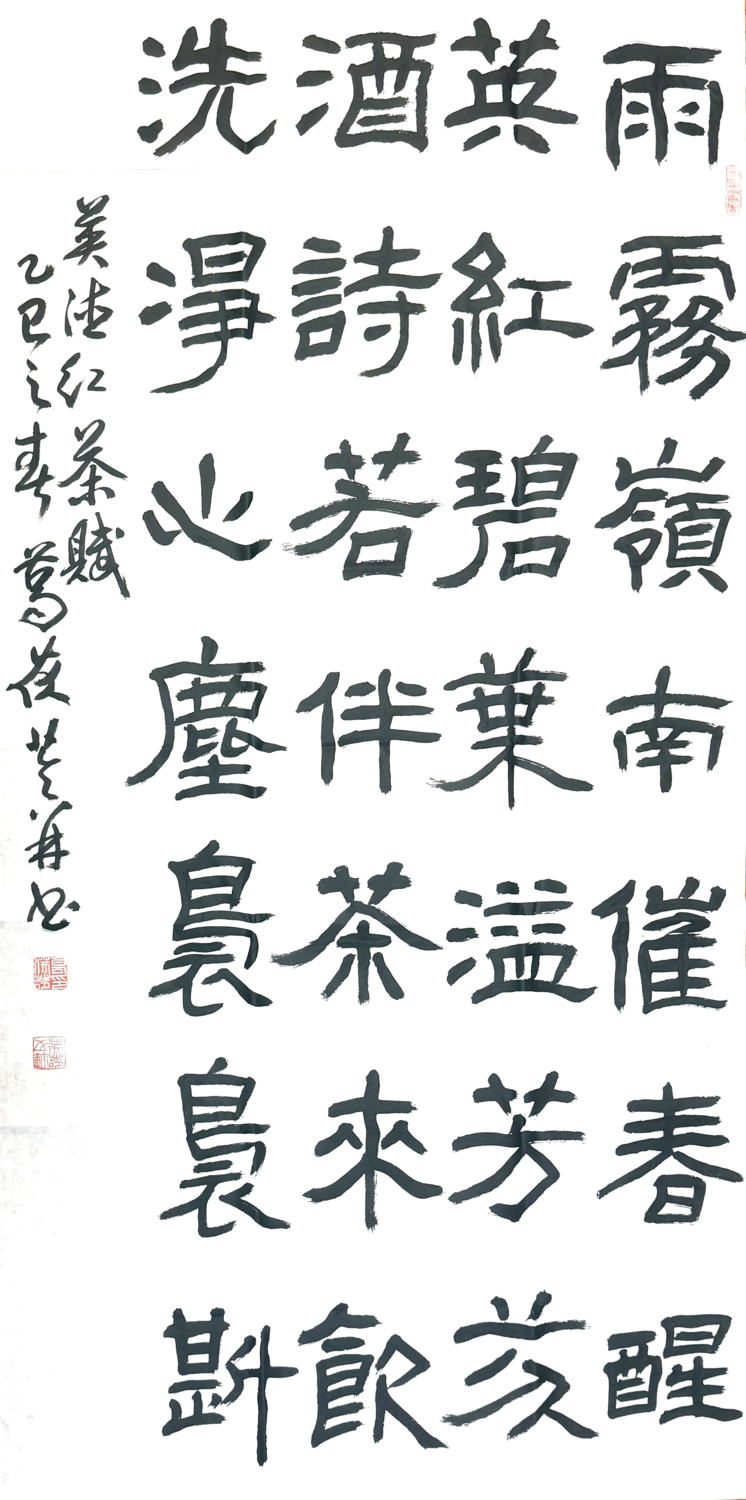 雨霧嶺南催春醒
英紅碧葉溢芳
酒詩若伴茶來飲
洗淨心塵裊裊斟
英德红茶賦
乙巳之春 葛 并书